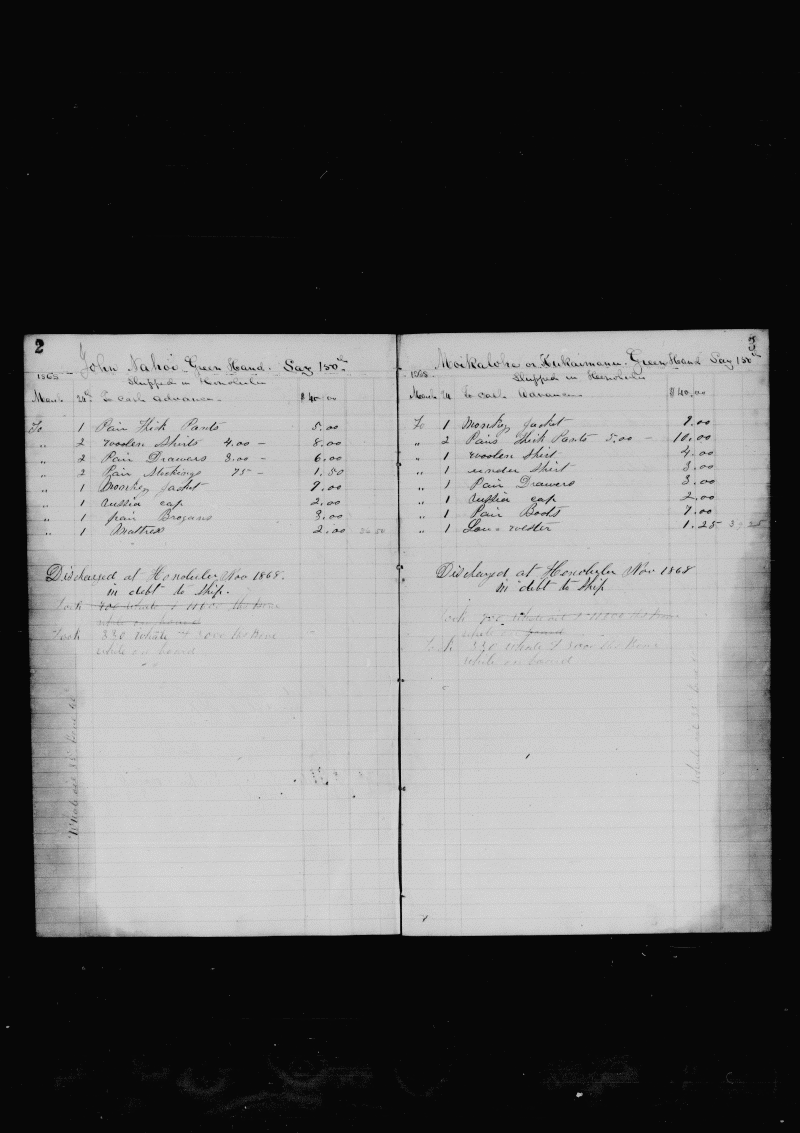 2
John Nahoi Green Hand. Say 150th
1868 Shipped in Honolulu
March 24th To cash advance $40.00
To 1 Pair Thick Pants 5.00
" 2 woolen Shirts 4.00 - 8.00
" 2 Pair Drawers 3.00 - 6.00
" 2 Pair Stockings 75 - 1.50
" 1 Monkey Jacket 9.00
" 1 russia cap 2.00
" 1 pair Brogans 3.00
" 1 Mattress 2.00 36 50
Discharged at Honolulu Nov 1868.
in debt to Ship.
Took
while on board
Took 330 whale & 3000 lbs Bone
while on board
3
Green Hand Say 150th
1868 Shipped in Honolulu
March 24 To cash advance $40.00
To 1 Monkey Jacket 9.00
" 2 Pairs Thick Pants 5.00 - 10.00
" 1 woolen Shirt 4.00
" 1 under Shirt 3.00
" 1 Pair Drawers 3.00
" 1 russia cap 2.00
" 1 Pair Boots 7.00
" 1 Sou-wester 1.25
Discharged at Honolulu Nov 1868
in debt to Ship
while on board
Took 330 whale & 3000 lbs Bone
while on board